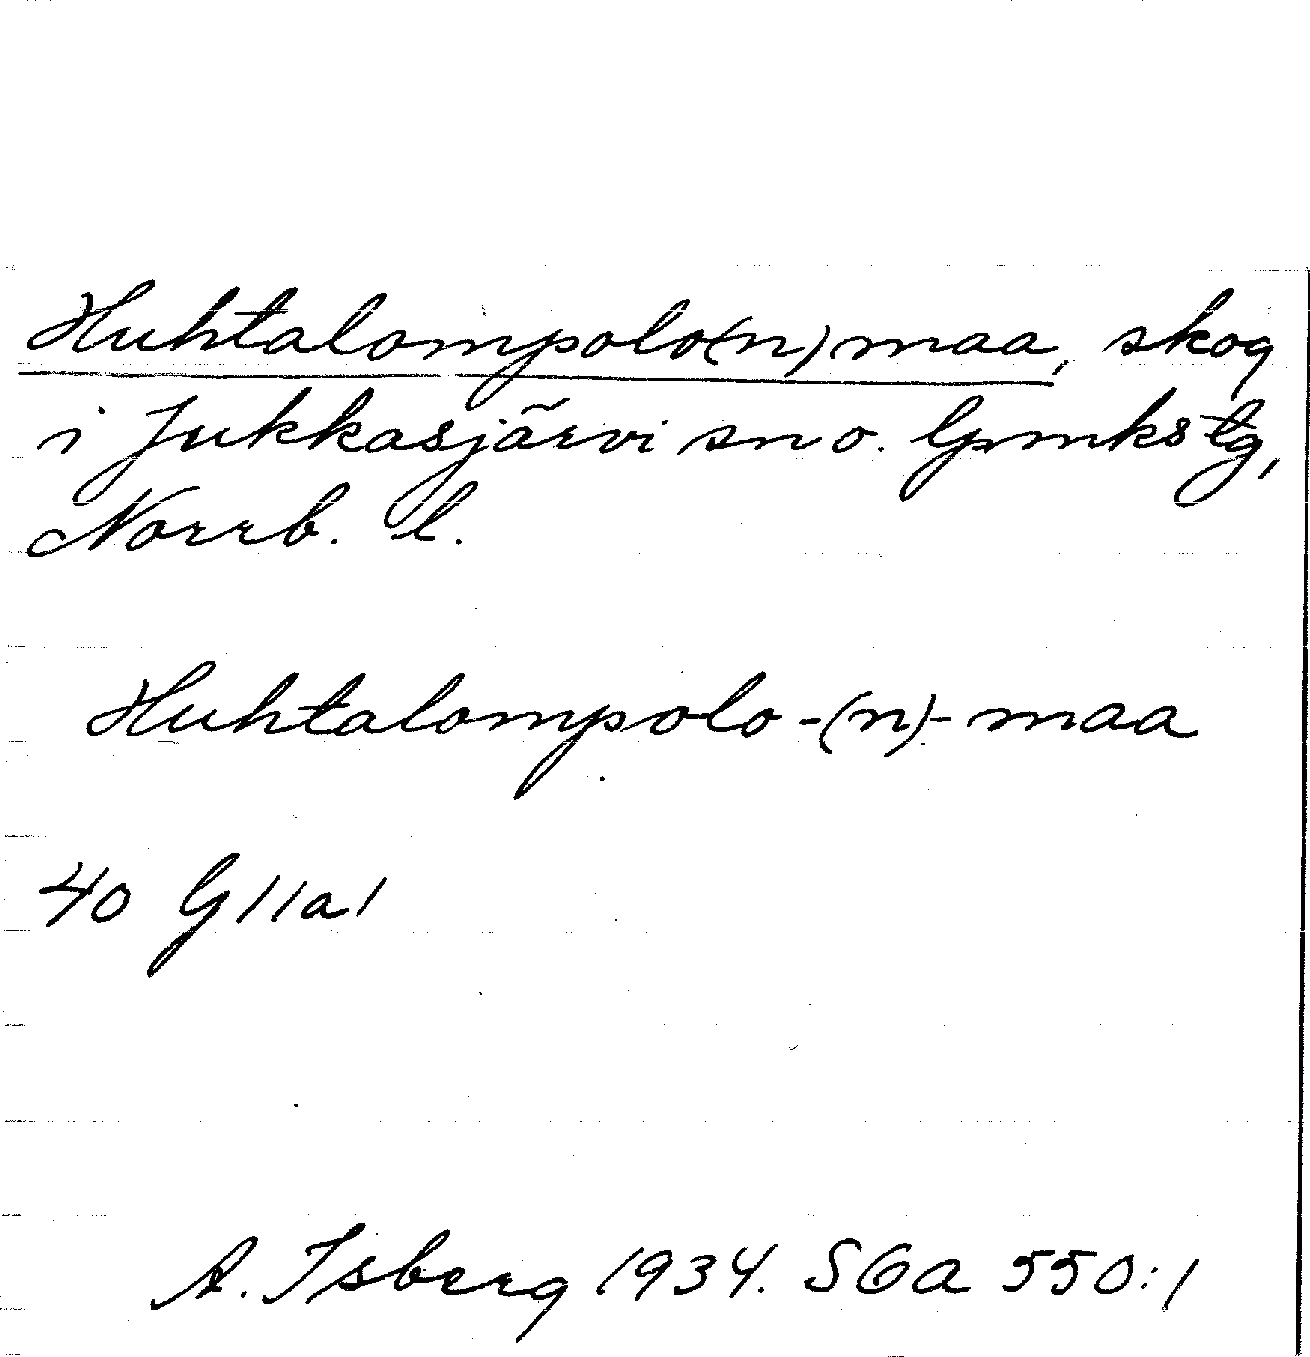 Huhtalompolo(n)maa, skog
i Jukkasjärvi sn o. lpmkstg,
Norrb. l.
Huhtalompolo-(n)-maa
40 G11a1
A. Isberg 1934. SGa 550:1